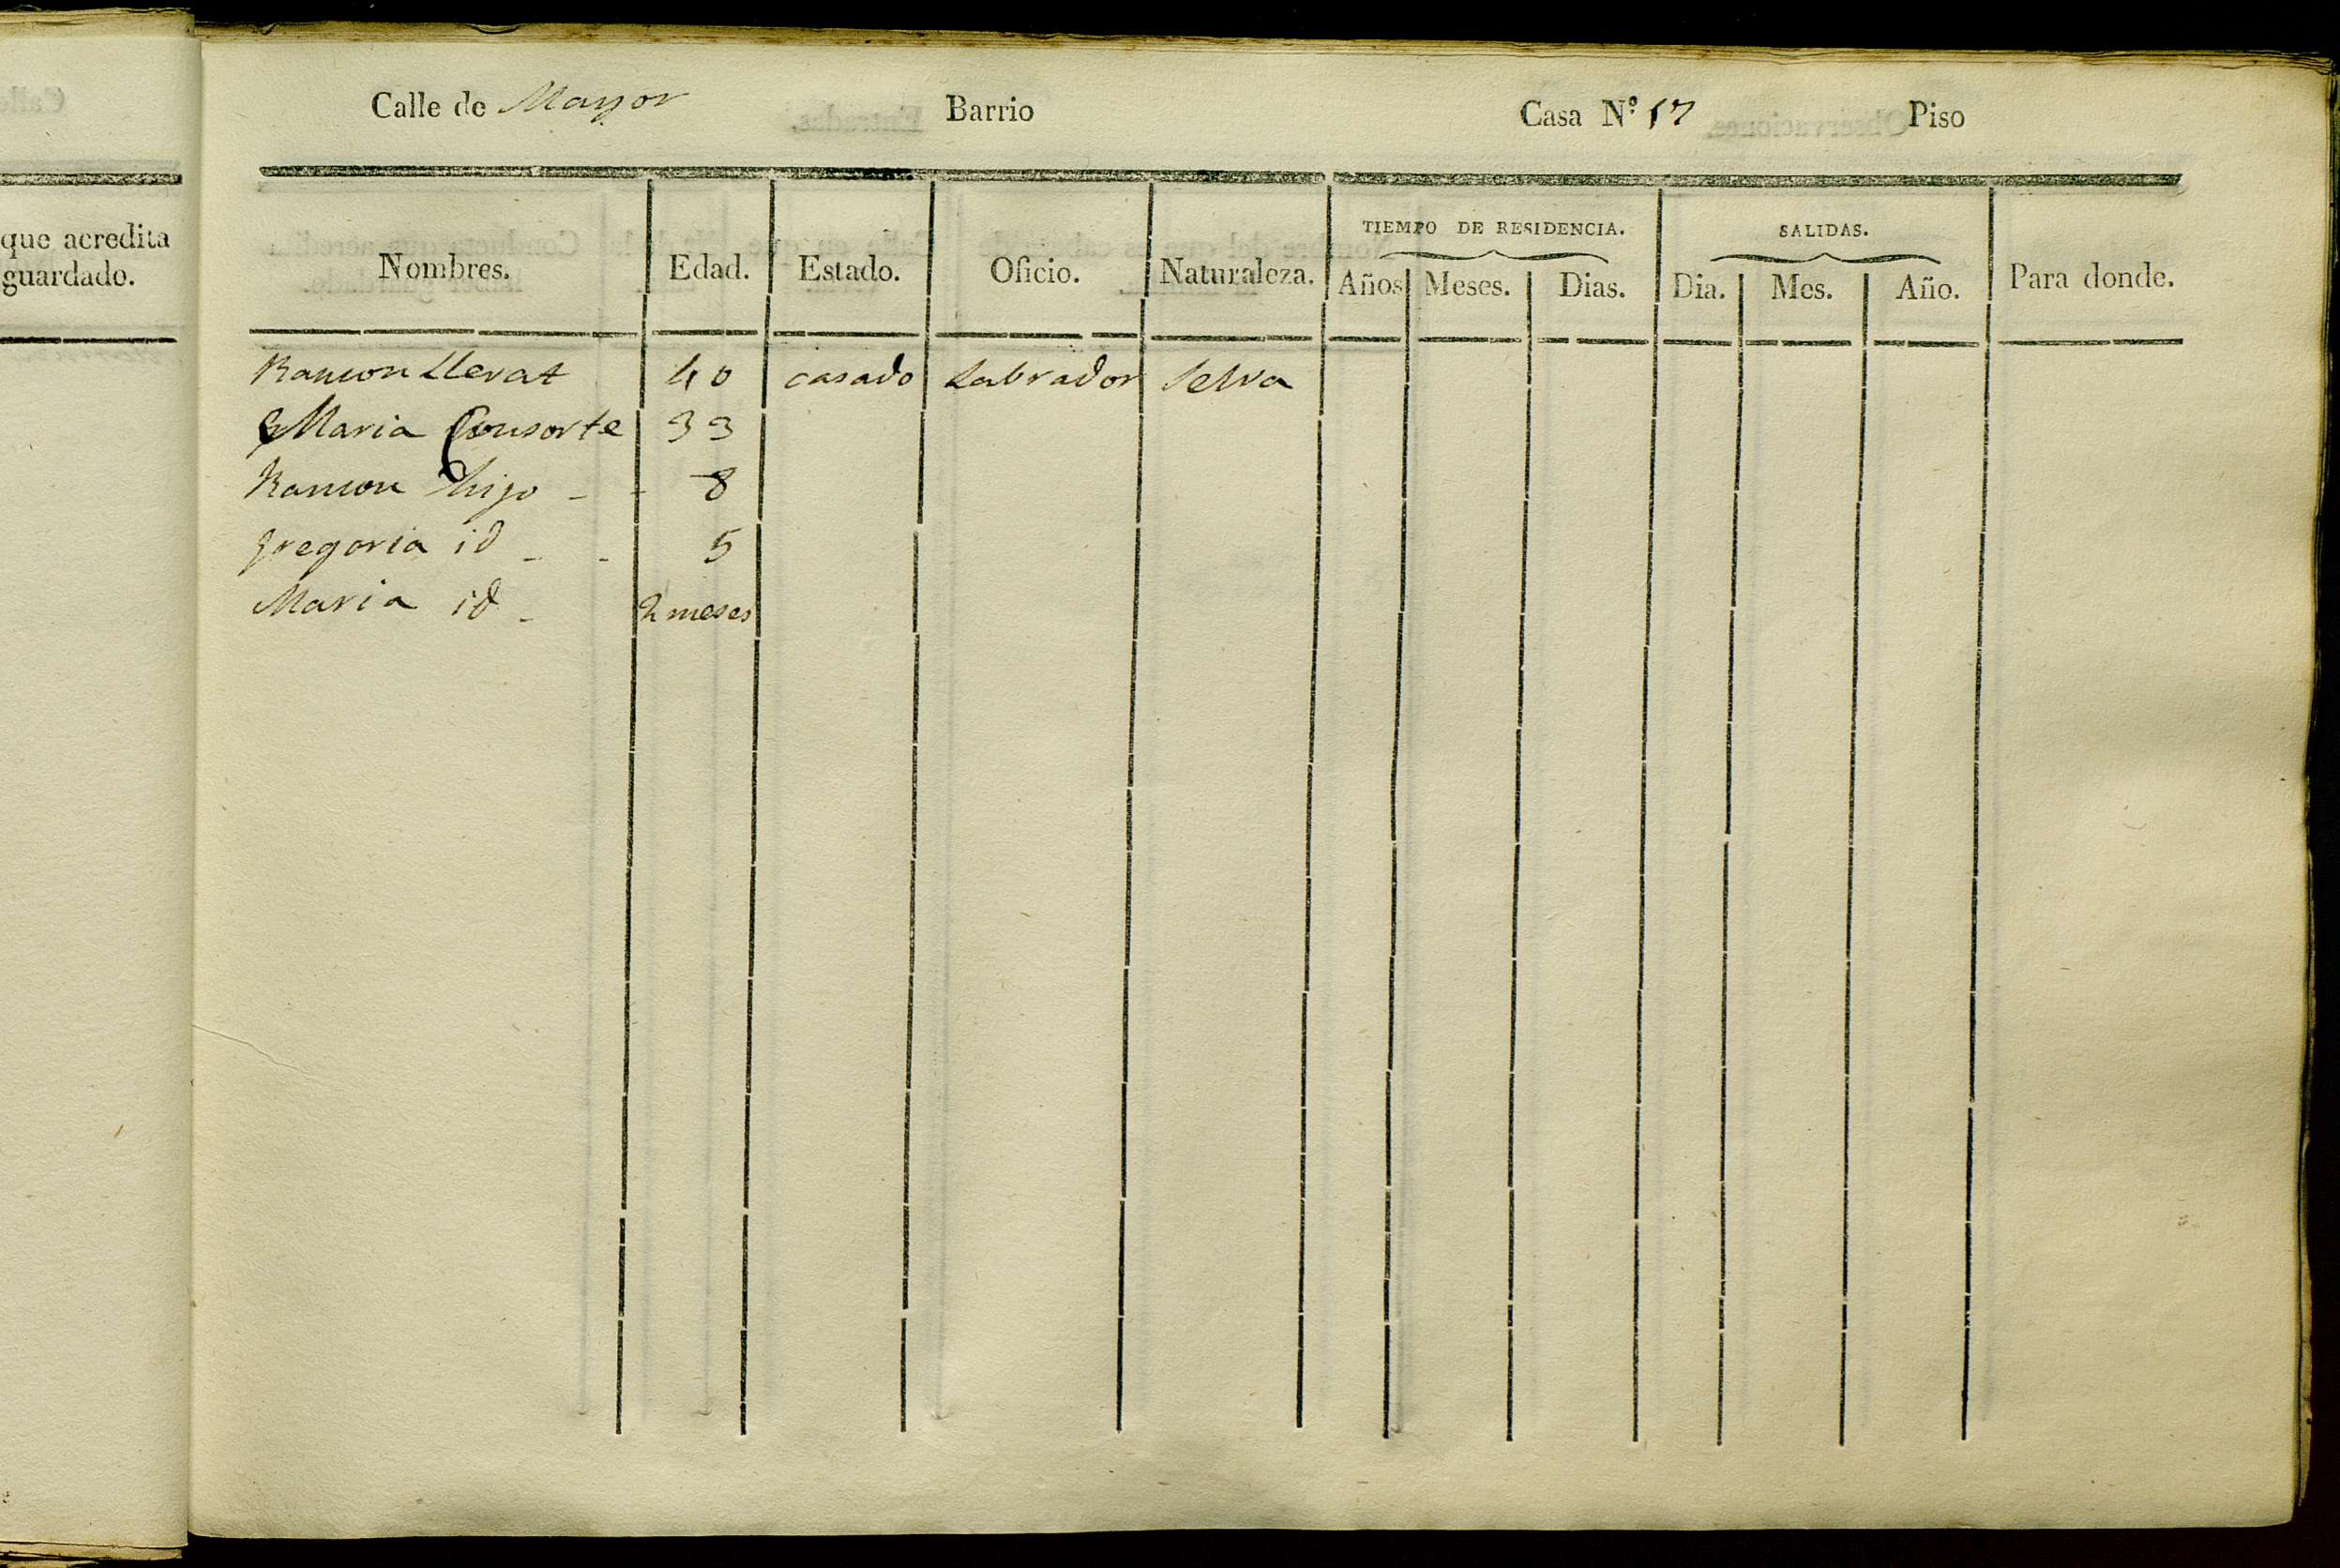 que acredita
guardado.
Calle de Mayor Barrio Casa N.º 17 Piso
TIEMPO DE RESIDENCIA. SALIDAS.
Nombres. Edad. Estado. Oficio. Naturaleza. Años Meses. Dias. Dia. Mes. Año. Para donde.
Ramon Llevat 40 casado Labrador Selva
Maria Consorte 33
Ramon hijo - - 8
Gregoria id - - 5
Maria id - 2 meses